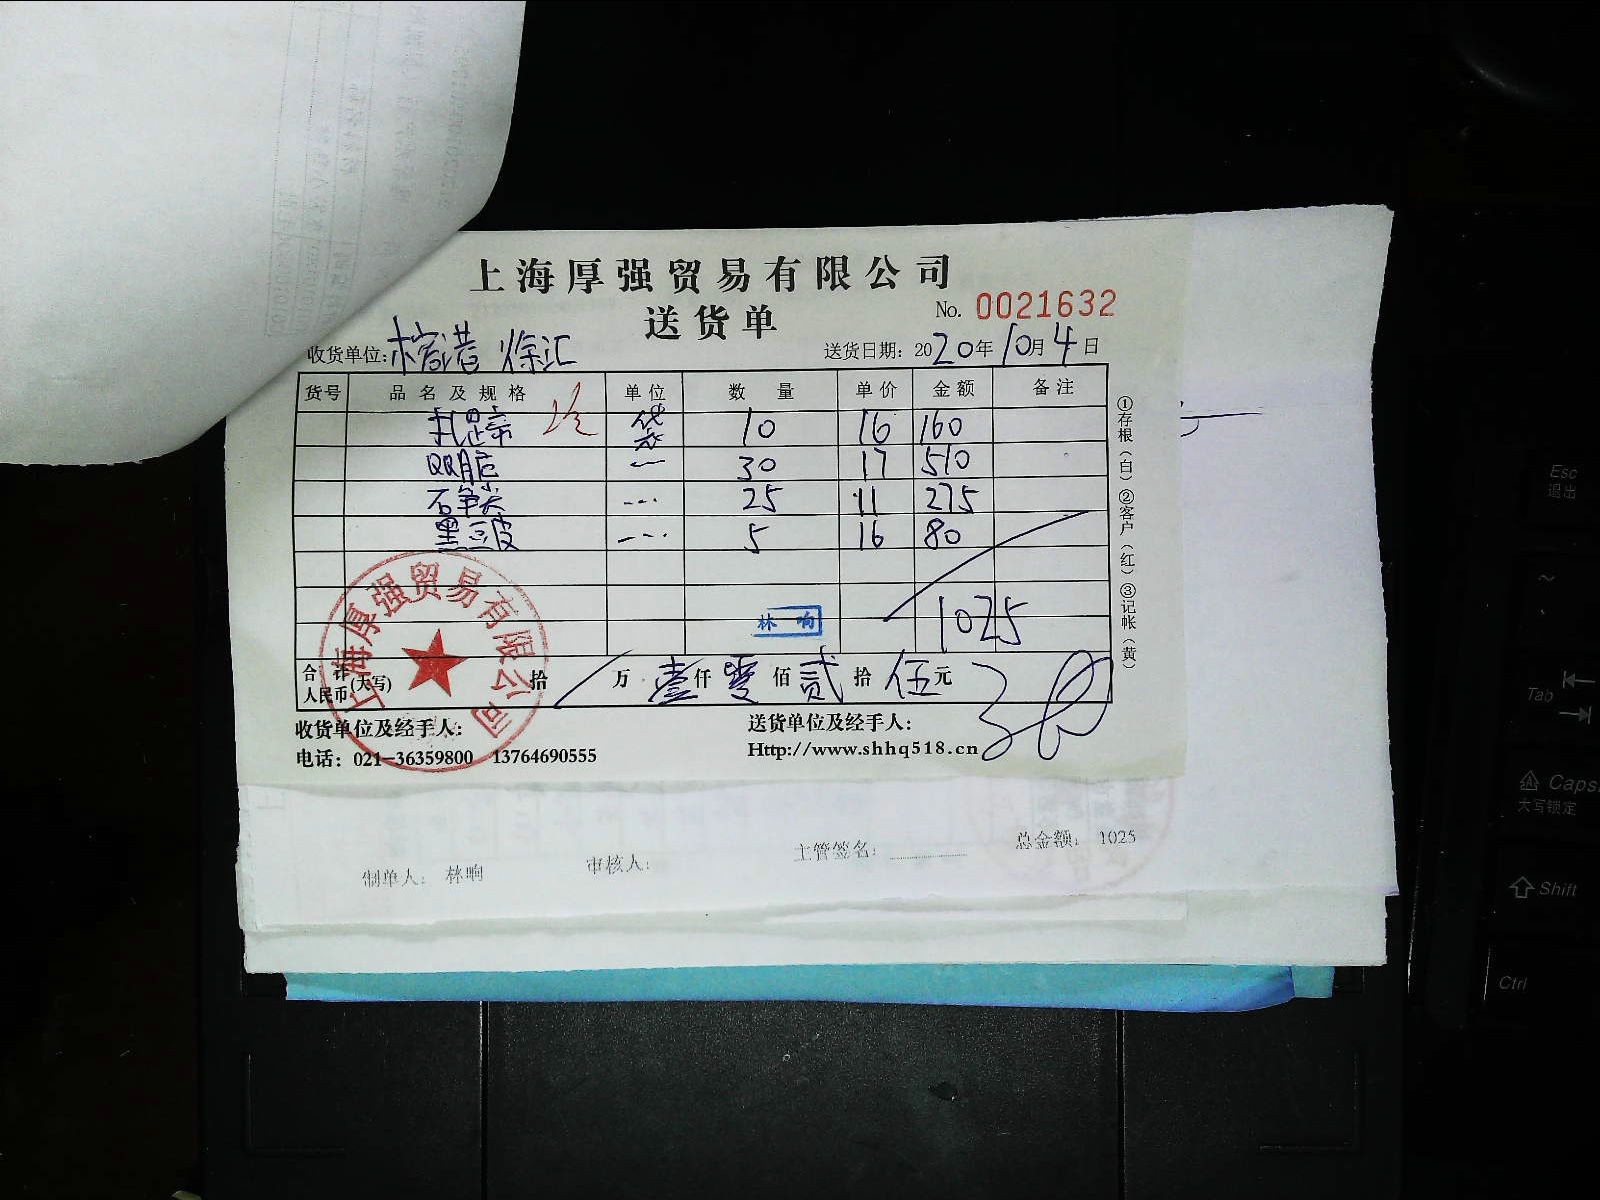 上海厚强贸易有限公司
送货单
No. 0021632
收货单位: 榕港 徐汇
送货日期: 2020年10月4日
货号 品名及规格 单位 数量 单价 金额 备注
扎蹄 袋 10 16 160
QQ肠 30 17 510
25 11 275
黑豆皮 5 16 80
林响
1025
合计人民币(大写) 拾 万 壹仟 零佰 贰拾 伍元
收货单位及经手人:
送货单位及经手人:
电话: 021-36359800 13764690555
Http://www.shhq518.cn
①存根(白)②客户(红)③记帐(黄)
上海厚强贸易有限公司
制单人: 林响
审核人:
主管签名:
总金额: 1025
Esc
退出
Tab
Caps
大写锁定
Shift
Ctrl